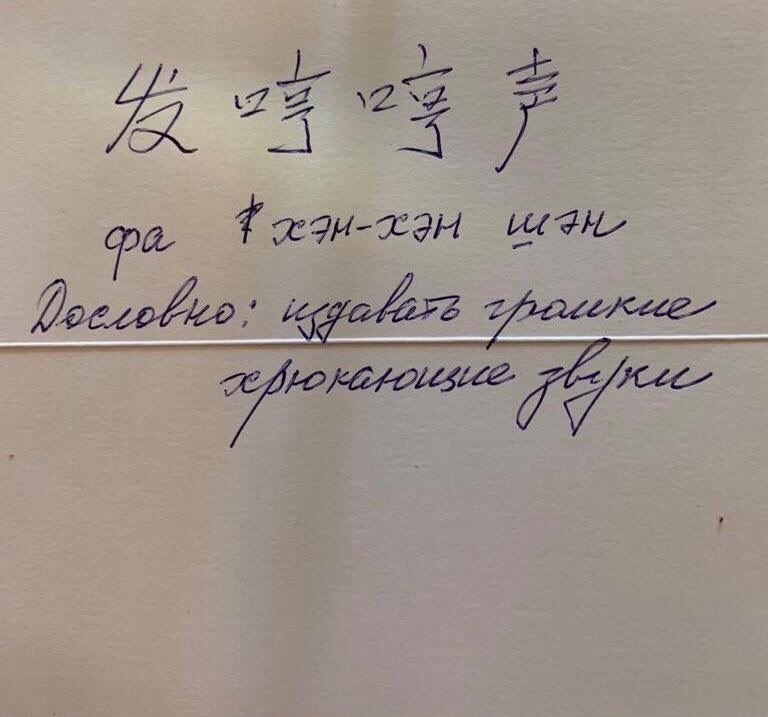 发哼哼声
фа хэн-хэн шэн
Дословно: издавать громкие
хрюкающие звуки